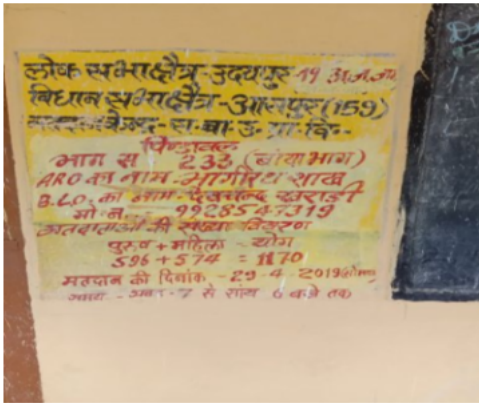 लोक सभा क्षेत्र-उदयपुर 19 अ.ज.जा.
विधान सभा क्षेत्र-आसपुर (159)
मतदान केन्द्र-रा.बा.उ.प्रा.वि.-
भाग स 233 (बांया भाग)
ARO का नाम-भागीरथ साख
B.L.O. का नाम-देवचन्द खराडी
मो.न... 9928547319
मतदाताओं की संख्या विवरण
पुरुष + महिला - योग
596 + 574 = 1170
मतदान की दिनांक - 29-4-2019
7 से सांय 6 बजे तक